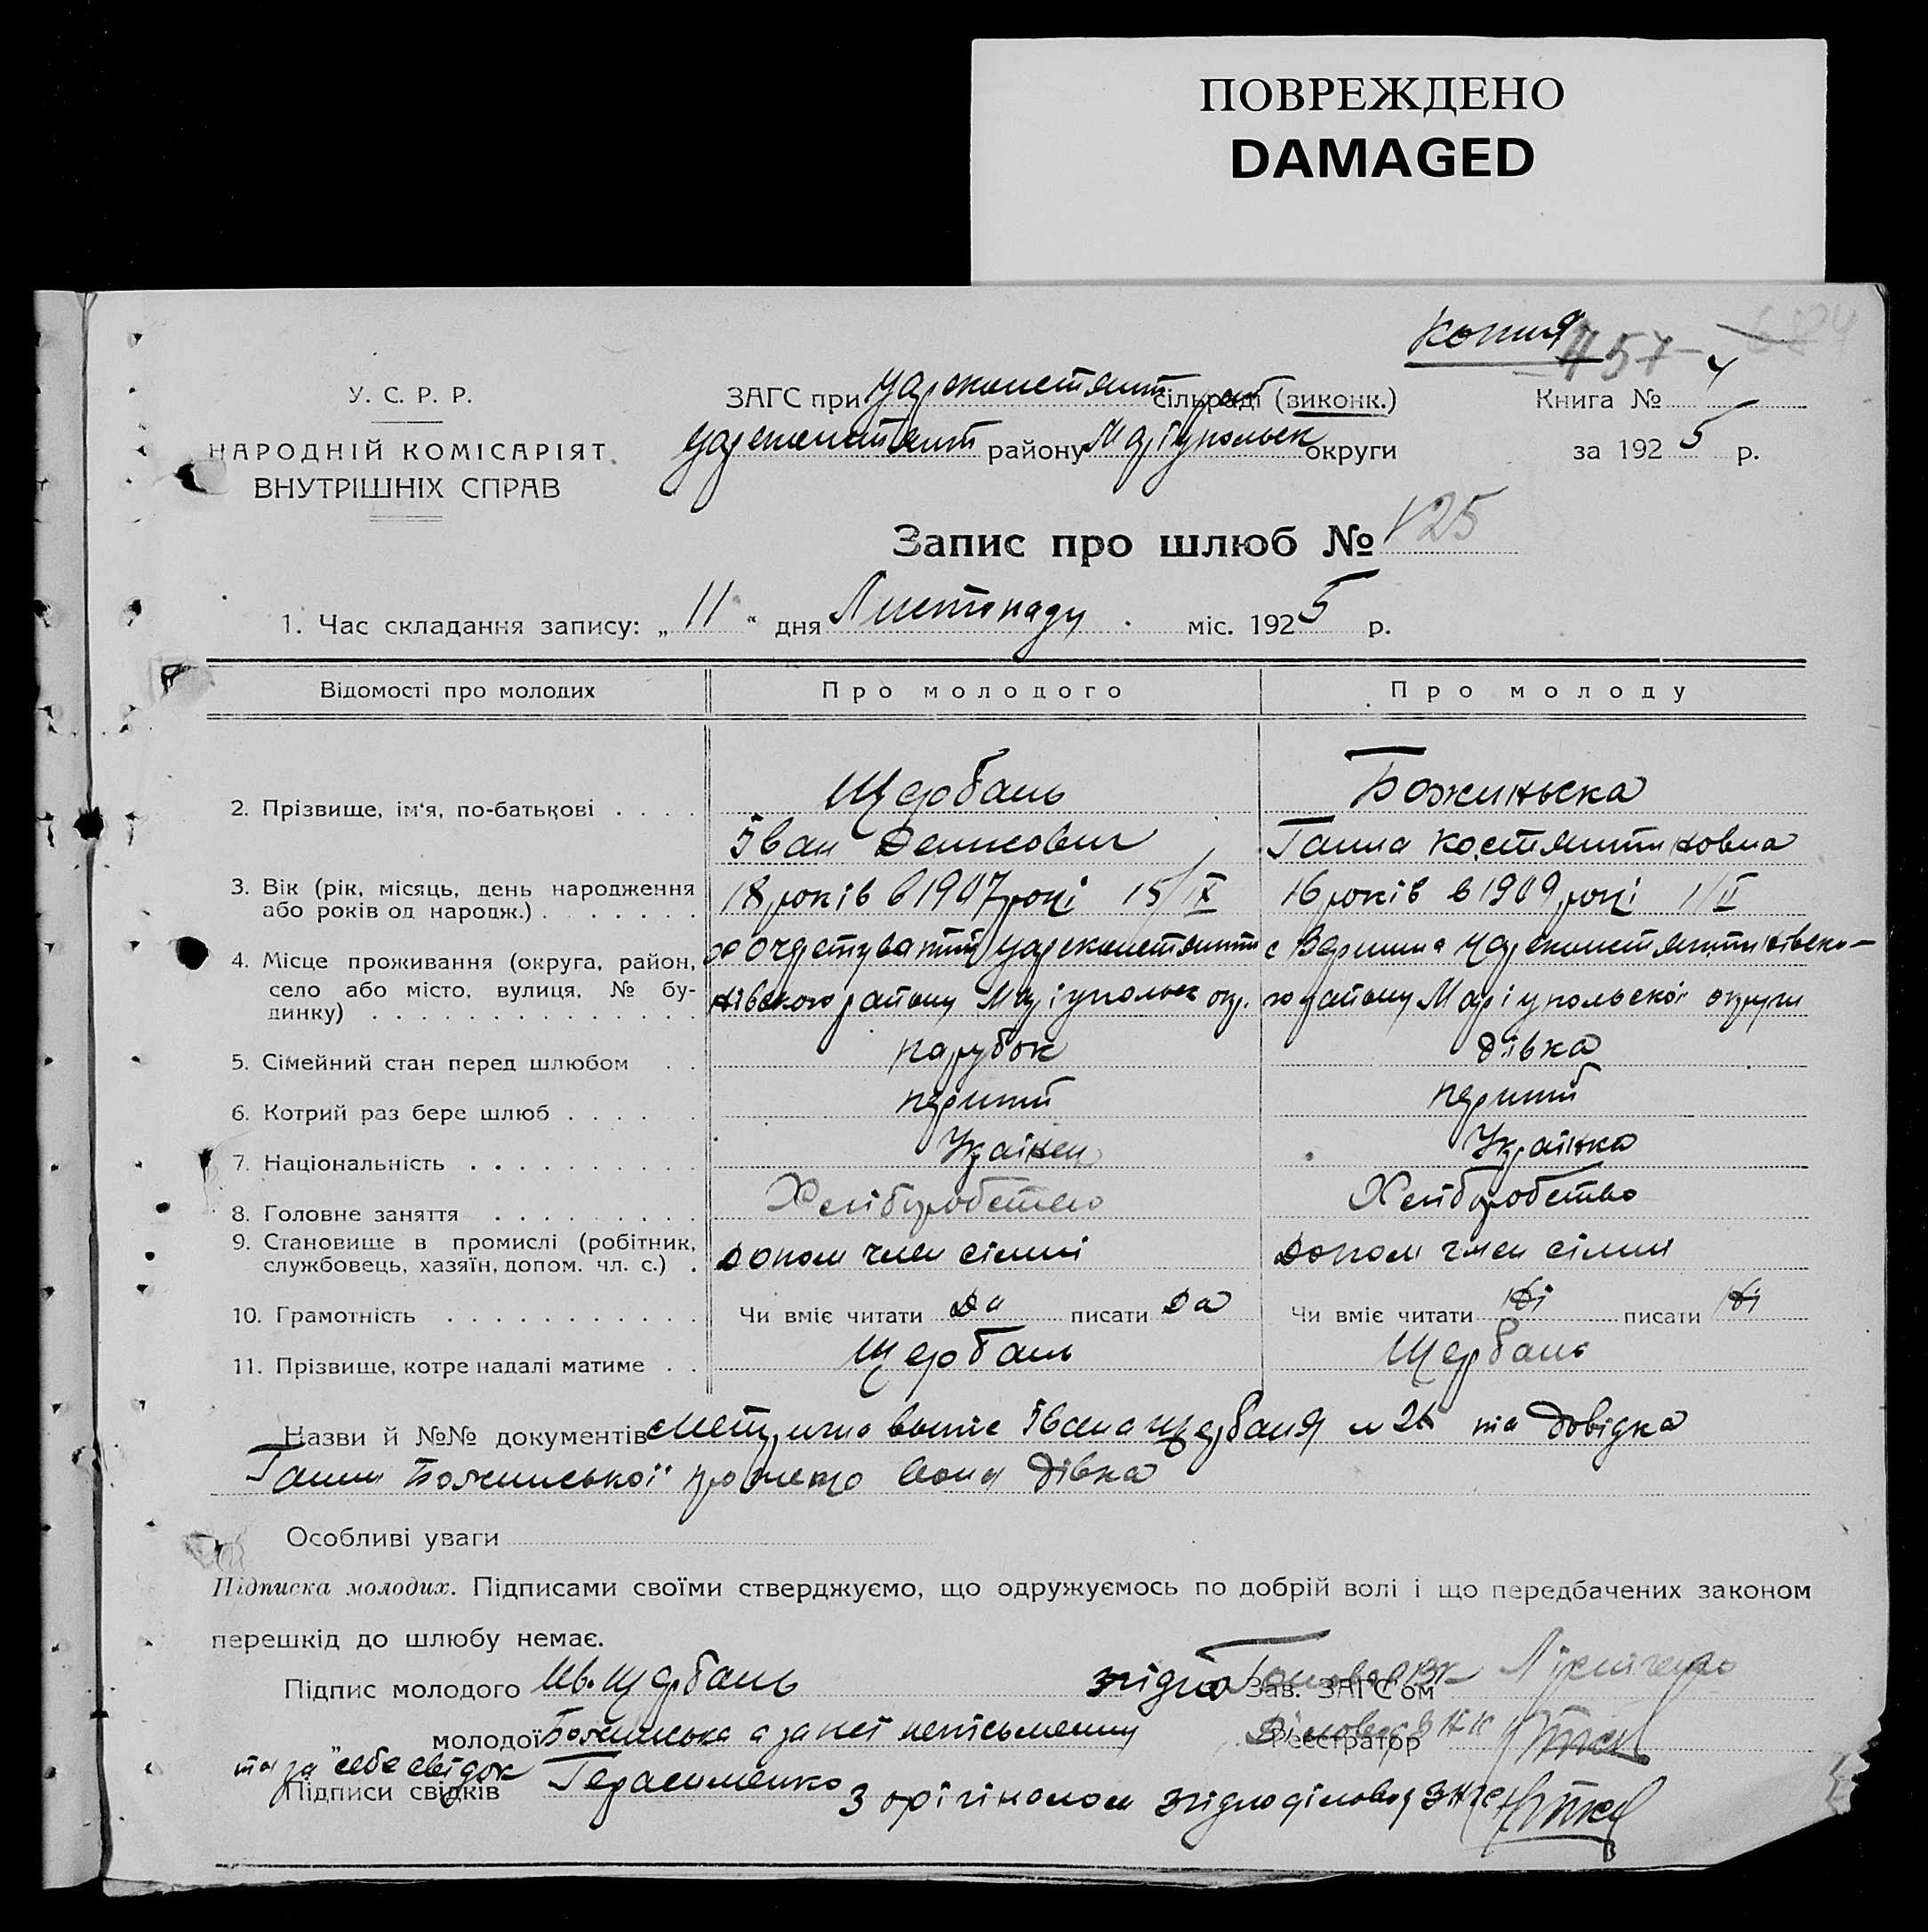 ПОВРЕЖДЕНО
DAMAGED
Копия
457
У. С. Р. Р.
НАРОДНІЙ КОМІСАРІЯТ
ВНУТРІШНІХ СПРАВ
ЗАГС при Цареконстянт сільраді (виконк.)
Цареконстянт району Маріупольськ округи
Книга № 4
за 1925 р.
Запис про шлюб № 125
1. Час складання запису: „ 11 “ дня Листопаду міс. 1925 р.
Відомості про молодих Про молодого Про молоду
2. Прізвище, ім‘я, по-батькові . . . . Щербань Божиньска
Іван Денисович Ганна Костянтиновна
3. Вік (рік, місяць, день народження
або років од народж.) . . . . . . . 18 років в 1907 році 15/IX 16 років в 1909 році 1/II
4. Місце проживання (округа, район, Цареконстянти с Вершина Царекомстянтинівско-
село або місто, вулиця, № бу-
динку) . . . . . . . . . . . . . . нівского району Маріупольск окр. го району Маріупольскоі округи
5. Сімейний стан перед шлюбом . . парубок дівка
6. Котрий раз бере шлюб . . . . . . перший перший
7. Національність . . . . . . . . . . Украінец Украінка
8. Головне заняття . . . . . . . . . Хліборобство Хліборобство
9. Становище в промислі (робітник,
службовець, хазяїн, допом. чл. с.) . допом член сімьі допом член сімьі
10. Грамотність . . . . . . . . . . . Чи вміє читати Да писати Да Чи вміє читати Ні писати Ні
11. Прізвище, котре надалі матиме . . Щербань Щербань
Назви й №№ документів випис Івана Щербаня та Довідка
Ганни Божинськоі про те що вона дівка
Особливі уваги
Підписка молодих. Підписами своїми стверджуємо, що одружуємось по добрій волі і що передбачених законом
перешкід до шлюбу немає.
Підпис молодого Ив. Щербань згідно Голова РВК Зав. ЗАГС'ом
молодої Божинська а за неі неписьменну Реєстратор
та за себе свідок
Підписи свідків Герасименко З орігіналом згідно діловод